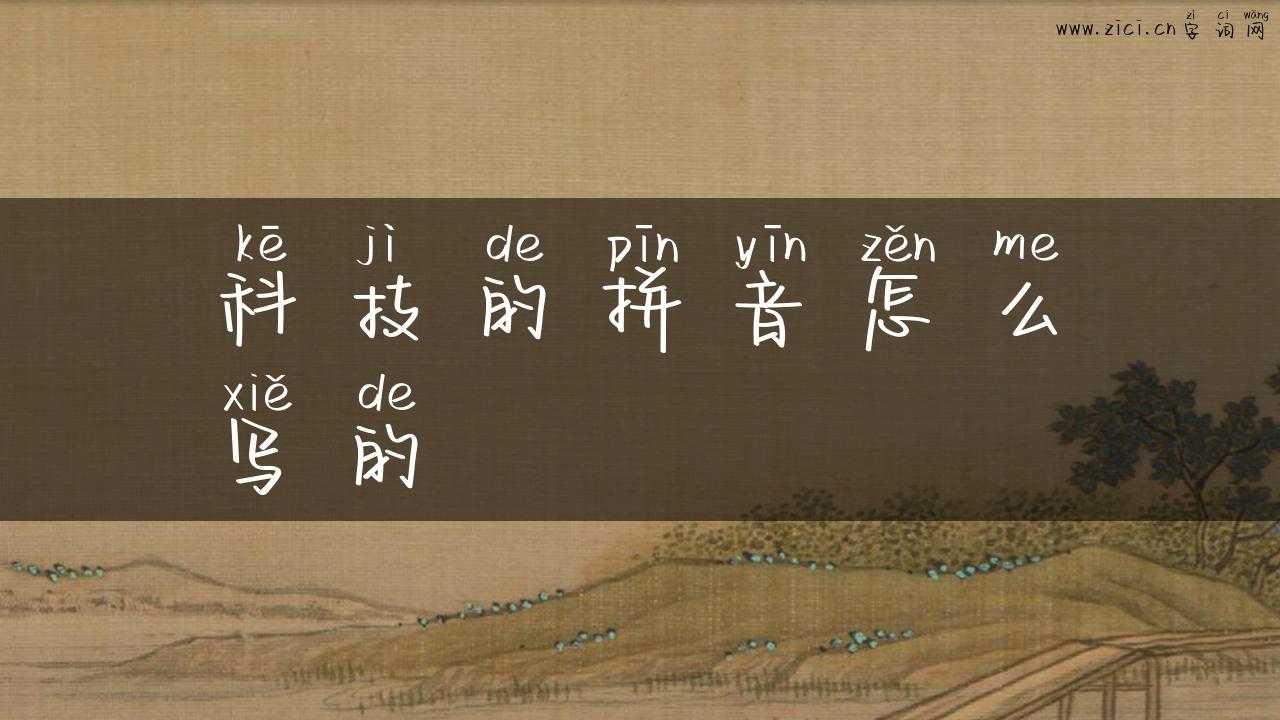 zì cí wǎng
www.zici.cn 字词网
kē jì de pīn yīn zěn me
科技的拼音怎么
xiě de
写的